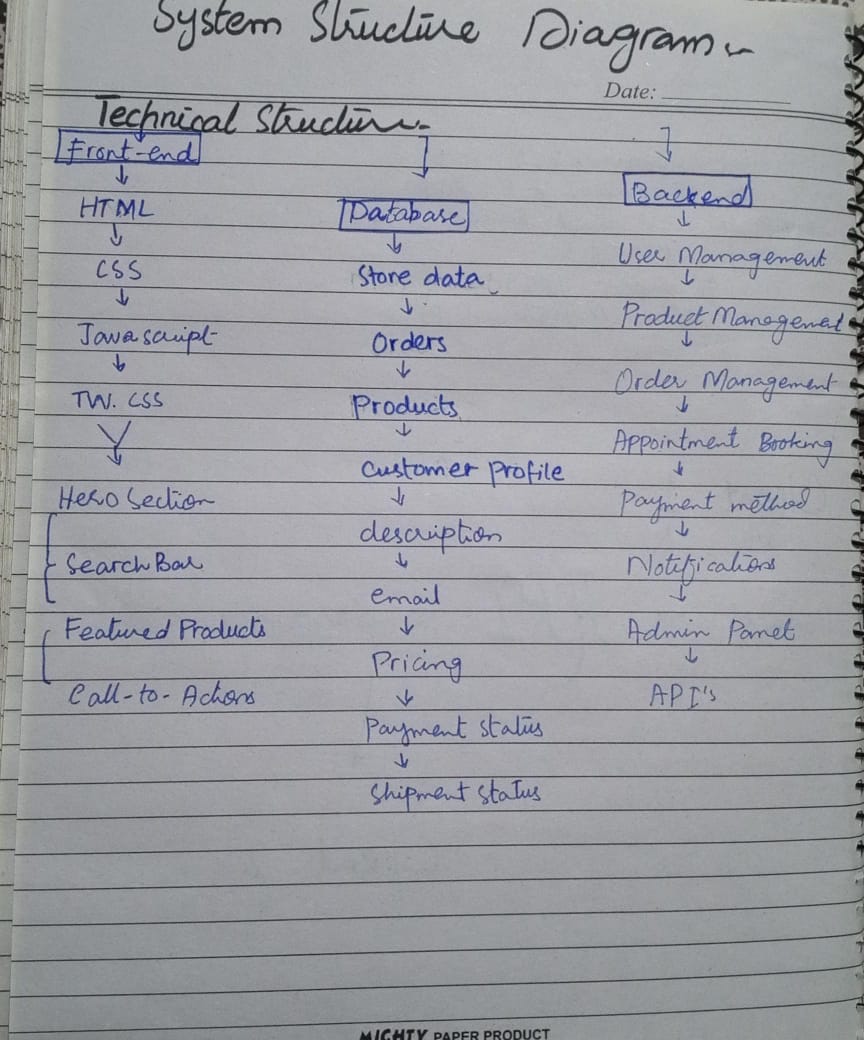 System Structure Diagram
Date:
Technical Structure
Front-end
HTML
CSS
Javascript
TW. CSS
Hero Section
Search Bar
Featured Products
Call-to-Actions
Database
Store data
Orders
Products
Customer Profile
description
email
Pricing
Payment status
Shipment status
Backend
User Management
Product Management
Order Management
Appointment Booking
Payment method
Notifications
Admin Panel
API's
MIGHTY PAPER PRODUCT